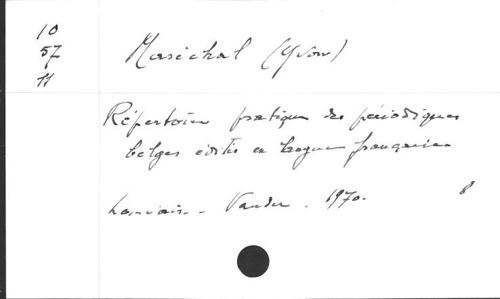 10
57
11
Maréchal (Yvon)
Répertoire pratique des périodiques
belges édités en langue française
Louvain - Vander. 1970.
8